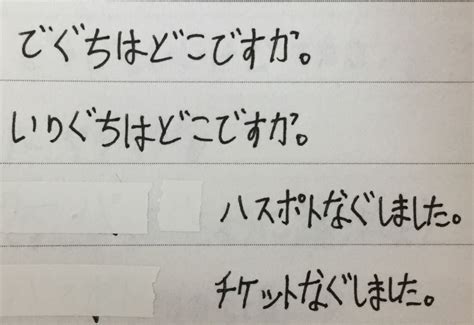 でぐちはどこですか。
いりぐちはどこですか。
ハスポトなぐしました。
チケットなぐしました。